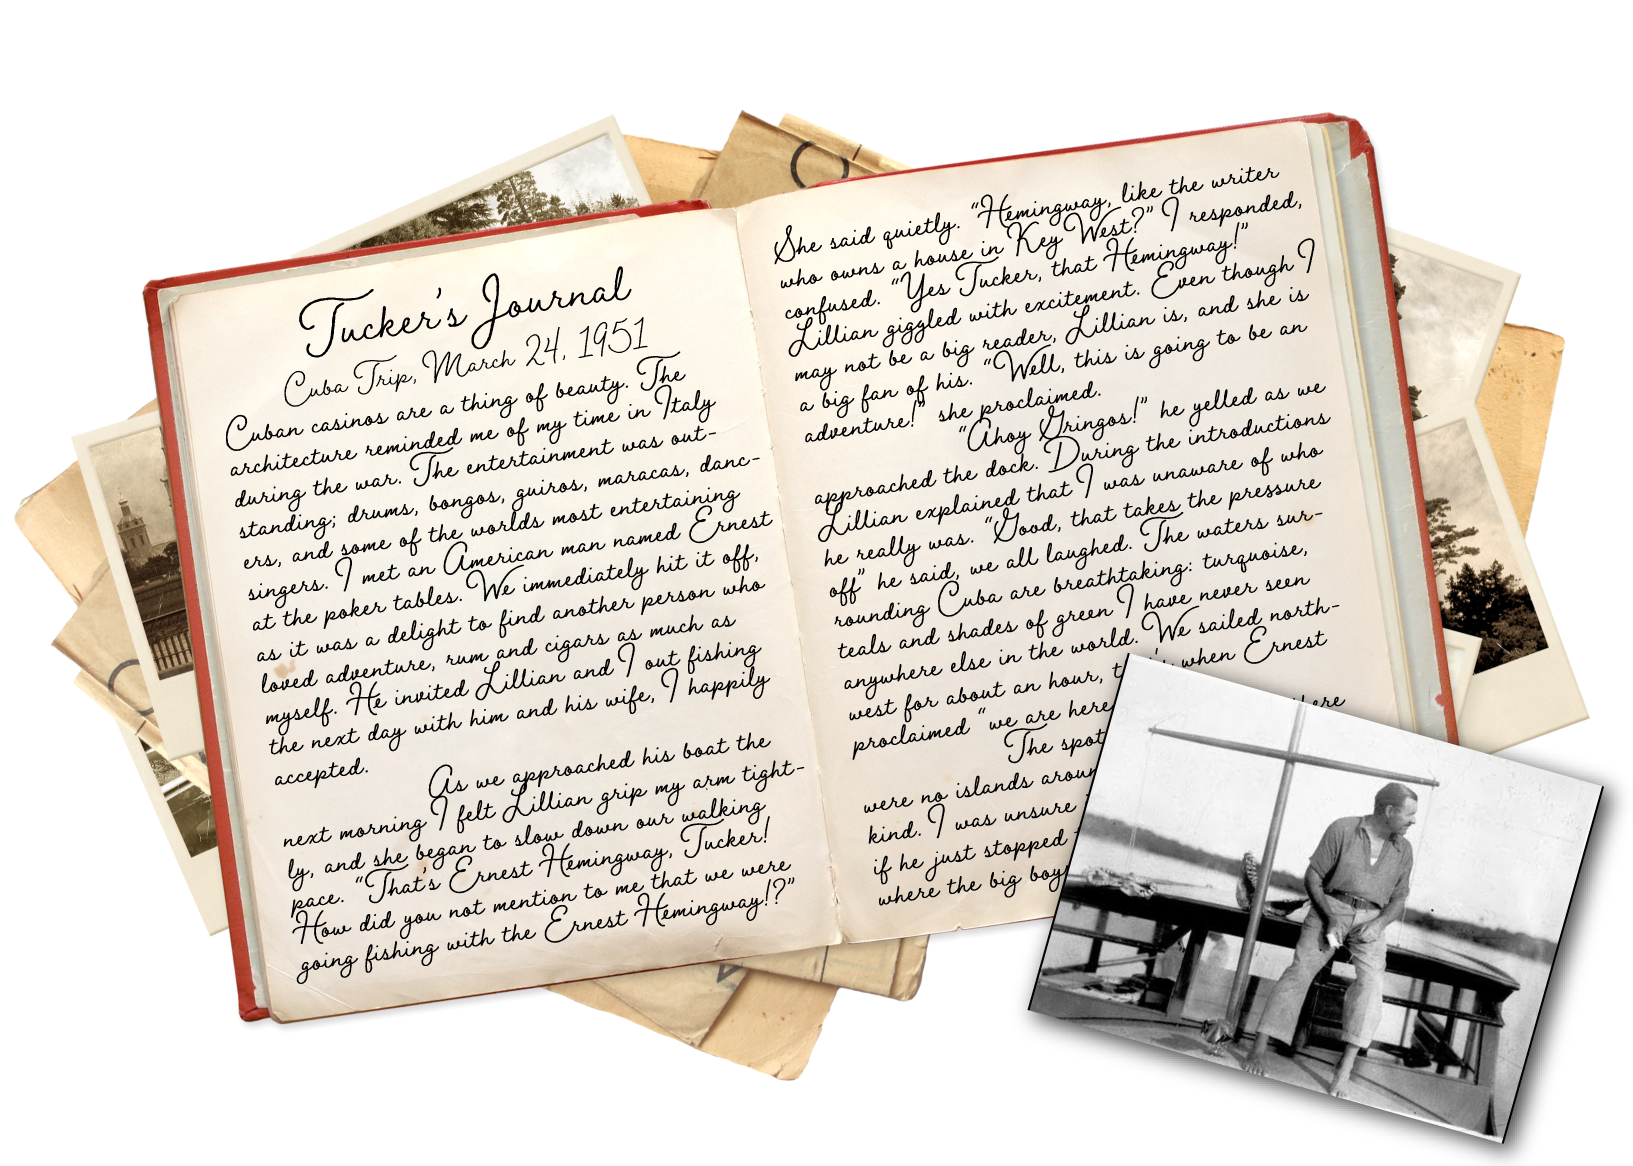 Tucker's Journal
Cuba Trip, March 24, 1951
Cuban casinos are a thing of beauty. The
architecture reminded me of my time in Italy
during the war. The entertainment was out-
standing; drums, bongos, guiros, maracas, danc-
ers, and some of the worlds most entertaining
singers. I met an American man named Ernest
at the poker tables. We immediately hit it off,
as it was a delight to find another person who
loved adventure, rum and cigars as much as
myself. He invited Lillian and I out fishing
the next day with him and his wife, I happily
accepted.
As we approached his boat the
next morning I felt Lillian grip my arm tight-
ly, and she began to slow down our walking
pace. "That's Ernest Hemingway, Tucker!
How did you not mention to me that we were
going fishing with the Ernest Hemingway!?"
She said quietly. "Hemingway, like the writer
who owns a house in Key West?" I responded,
confused. "Yes Tucker, that Hemingway!"
Lillian giggled with excitement. Even though I
may not be a big reader, Lillian is, and she is
a big fan of his. "Well, this is going to be an
adventure!" she proclaimed.
"Ahoy Gringos!" he yelled as we
approached the dock. During the introductions
Lillian explained that I was unaware of who
he really was. "Good, that takes the pressure
off" he said, we all laughed. The waters sur-
rounding Cuba are breathtaking: turquoise,
teals and shades of green I have never seen
anywhere else in the world. We sailed north-
west for about an hour, when Ernest
proclaimed "we are here
The spot
were no islands
kind. I was unsure
if he just stopped
where the big